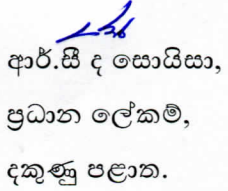 ආර්.සී ද සොයිසා,
ප්‍රධාන ලේකම්,
දකුණු පළාත.